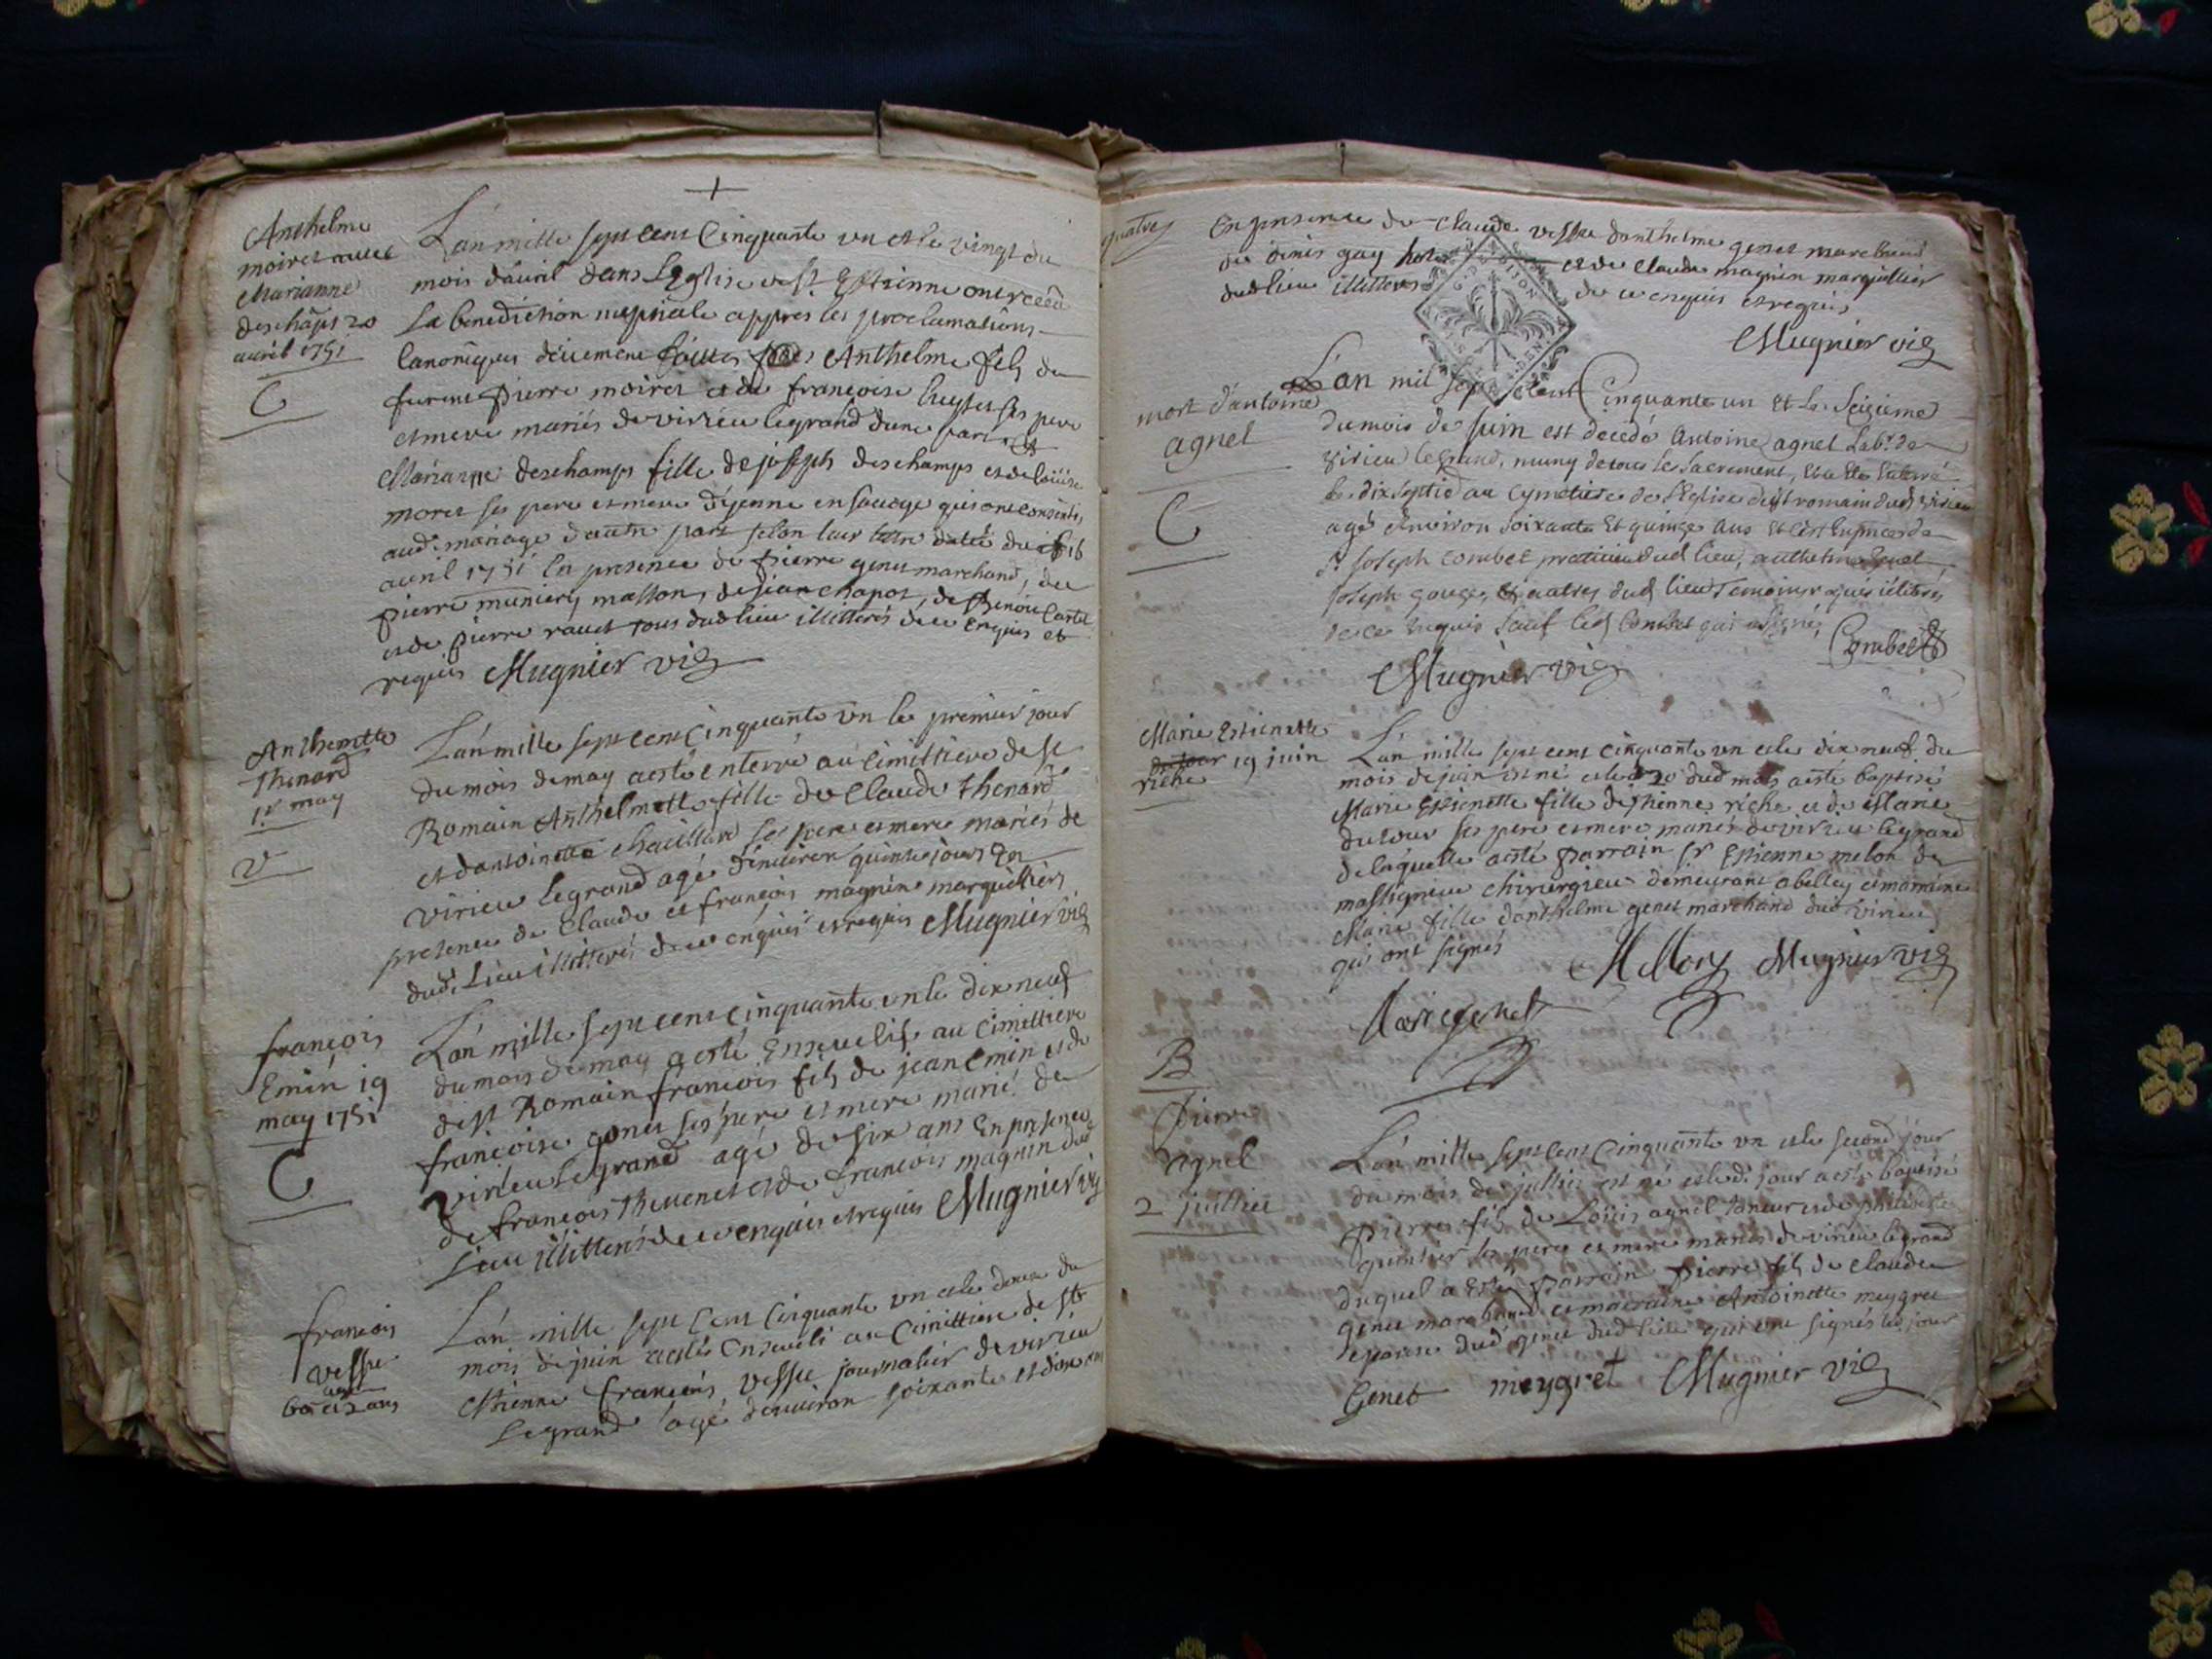 +
Anthelme
moiret avec
Marianne
deschaps 20
avril 1751
C
L'an mille sept cent Cinquante un et le vingt du
mois d'avril dans L'Eglise de st Estienne
La benediction nuptiale appres les proclamations
Canoniques düement faittes Anthelme fils de
Pierre moiret et de françoise ses pere
et mere mariés de virieu legrand d'une part et
Marianne deschamps fille de joseph deschamps et de loüise
moret ses pere et mere d'yenne en Savoye qui ont consentis
aud. mariage d'autre part selon leur lettre dattée du 16
avril 1751 En presence de pierre genet marchand, de
pierre munier masson, de jean chapot, de
et de pierre ravet tous dud lieu illitterés de ce Enquis et
requis Mugnier vic
Anthemette
Thenard
1er may
V
L'an mille sept cent Cinquante un le premier jour
du mois de may a esté enterré au cimittiere de st
Romain Anthelmette fille de Claude thenard
et d'antoinette chaillard ses pere et mere mariés de
virieu legrand agé d'environ quinze jours En
presence de Claude et françois magnin marguilliers
dud. Lieu illitterés de ce enquis et requis Mugnier vic
françois
Emin 19
may 1751
C
L'an mille sept cent cinquante un le dix neuf
du mois de may a esté Ensevelis au cimittiere
de st Romain francois fils de jean Emin et de
françoise genet ses pere et mere marié de
virieu legrand agé de six ans En presence
de françois thevenet et de francois magnin dud
Lieu illitterés de ce enquis et requis Mugnier vic
francois
vessu
agé
ans
L'an mille sept Cent Cinquante un et le douze du
mois de juin a esté Enseveli au Cimittiere de st
Estienne francois vessu journalier de virieu
Legrand agé d'environ soixante et douze ans
En presence de Claude vessu d'anthelme genet marchand
de denis guy et de Claude magnin marguillier
dud lieu illitterés de ce enquis et requis
Mugnier vic
mort d'antoine
agnel
C
L'an mil sept cent Cinquante un et le Seizieme
du mois de juin est decedé Antoine agnel Lab.r de
virieu le grand, muny de tous les Sacrement, et a Eté Enterré
le dixseptie au Cymetiere de l'Eglise de st romain dud virieu
agé d'environ soixante et quinze ans et en presence de
Sr Joseph combet praticien dud lieu, anthelme
joseph gouge, & autres dud lieu temoins requis
de ce enquis sauf led Combet qui a signé,
Combet
Mugnier vic
Marie Estienette
du four 19 juin
riche
B
L'an mille sept cent cinquante un et le dix neuf du
mois de juin est né et le 20 dud mois a esté baptisé
Marie Estienette fille d'estienne riche et de Marie
dufour ses pere et mere mariés de virieu legrand
de laquelle a esté parrain sr Estienne melon de
massignieu chirurgien demeurant a belley et marraine
Marie fille d'anthelme genet marchand dud virieu
qui ont signés
Mugnier vic
Marie genet
Pierre
agnel
2 juillier
L'an mille sept Cent Cinquante un et le second jour
du mois de juillier est né et led. jour a esté baptisé
Pierre fils de Loüis agnel taneur et de
ses pere et mere mariés de virieu legrand
duquel a Esté parrain pierre fils de Claude
genet marchand et marraine Antoinette meygret
epouse dud genet dud lieu qui ont signés led. jour
Genet meygret Mugnier vic